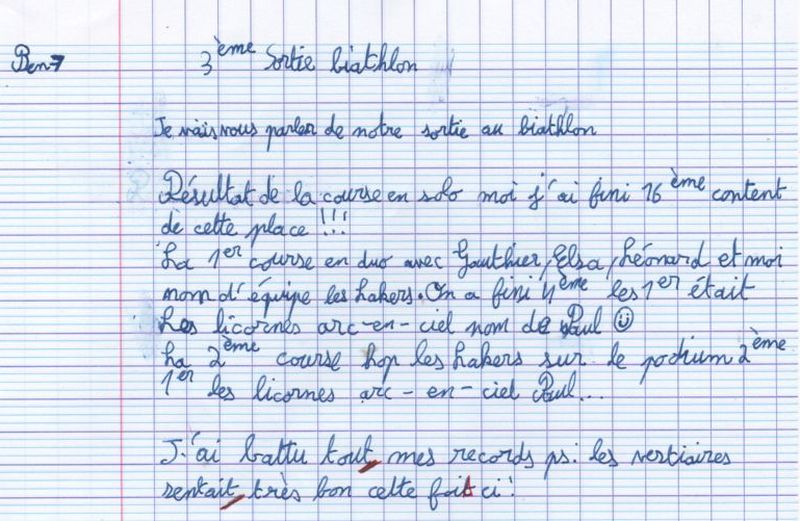 Ben7
3ème Sortie biathlon
Je vais vous parler de notre sortie au biathlon
Résultat de la course en solo moi j'ai fini 16ème content
de cette place !!!
La 1er course en duo avec Gauthier, Elsa, Léonard et moi
nom d'équipe les hakers. On a fini 4ème les 1er était
Les licornes arc-en-ciel nom de Paul ☺
La 2ème course hop les hakers sur le podium 2ème
1er les licornes arc-en-ciel Paul...
J'ai battu tout mes records ps: les vertiaires
sentait très bon cette foit ci!